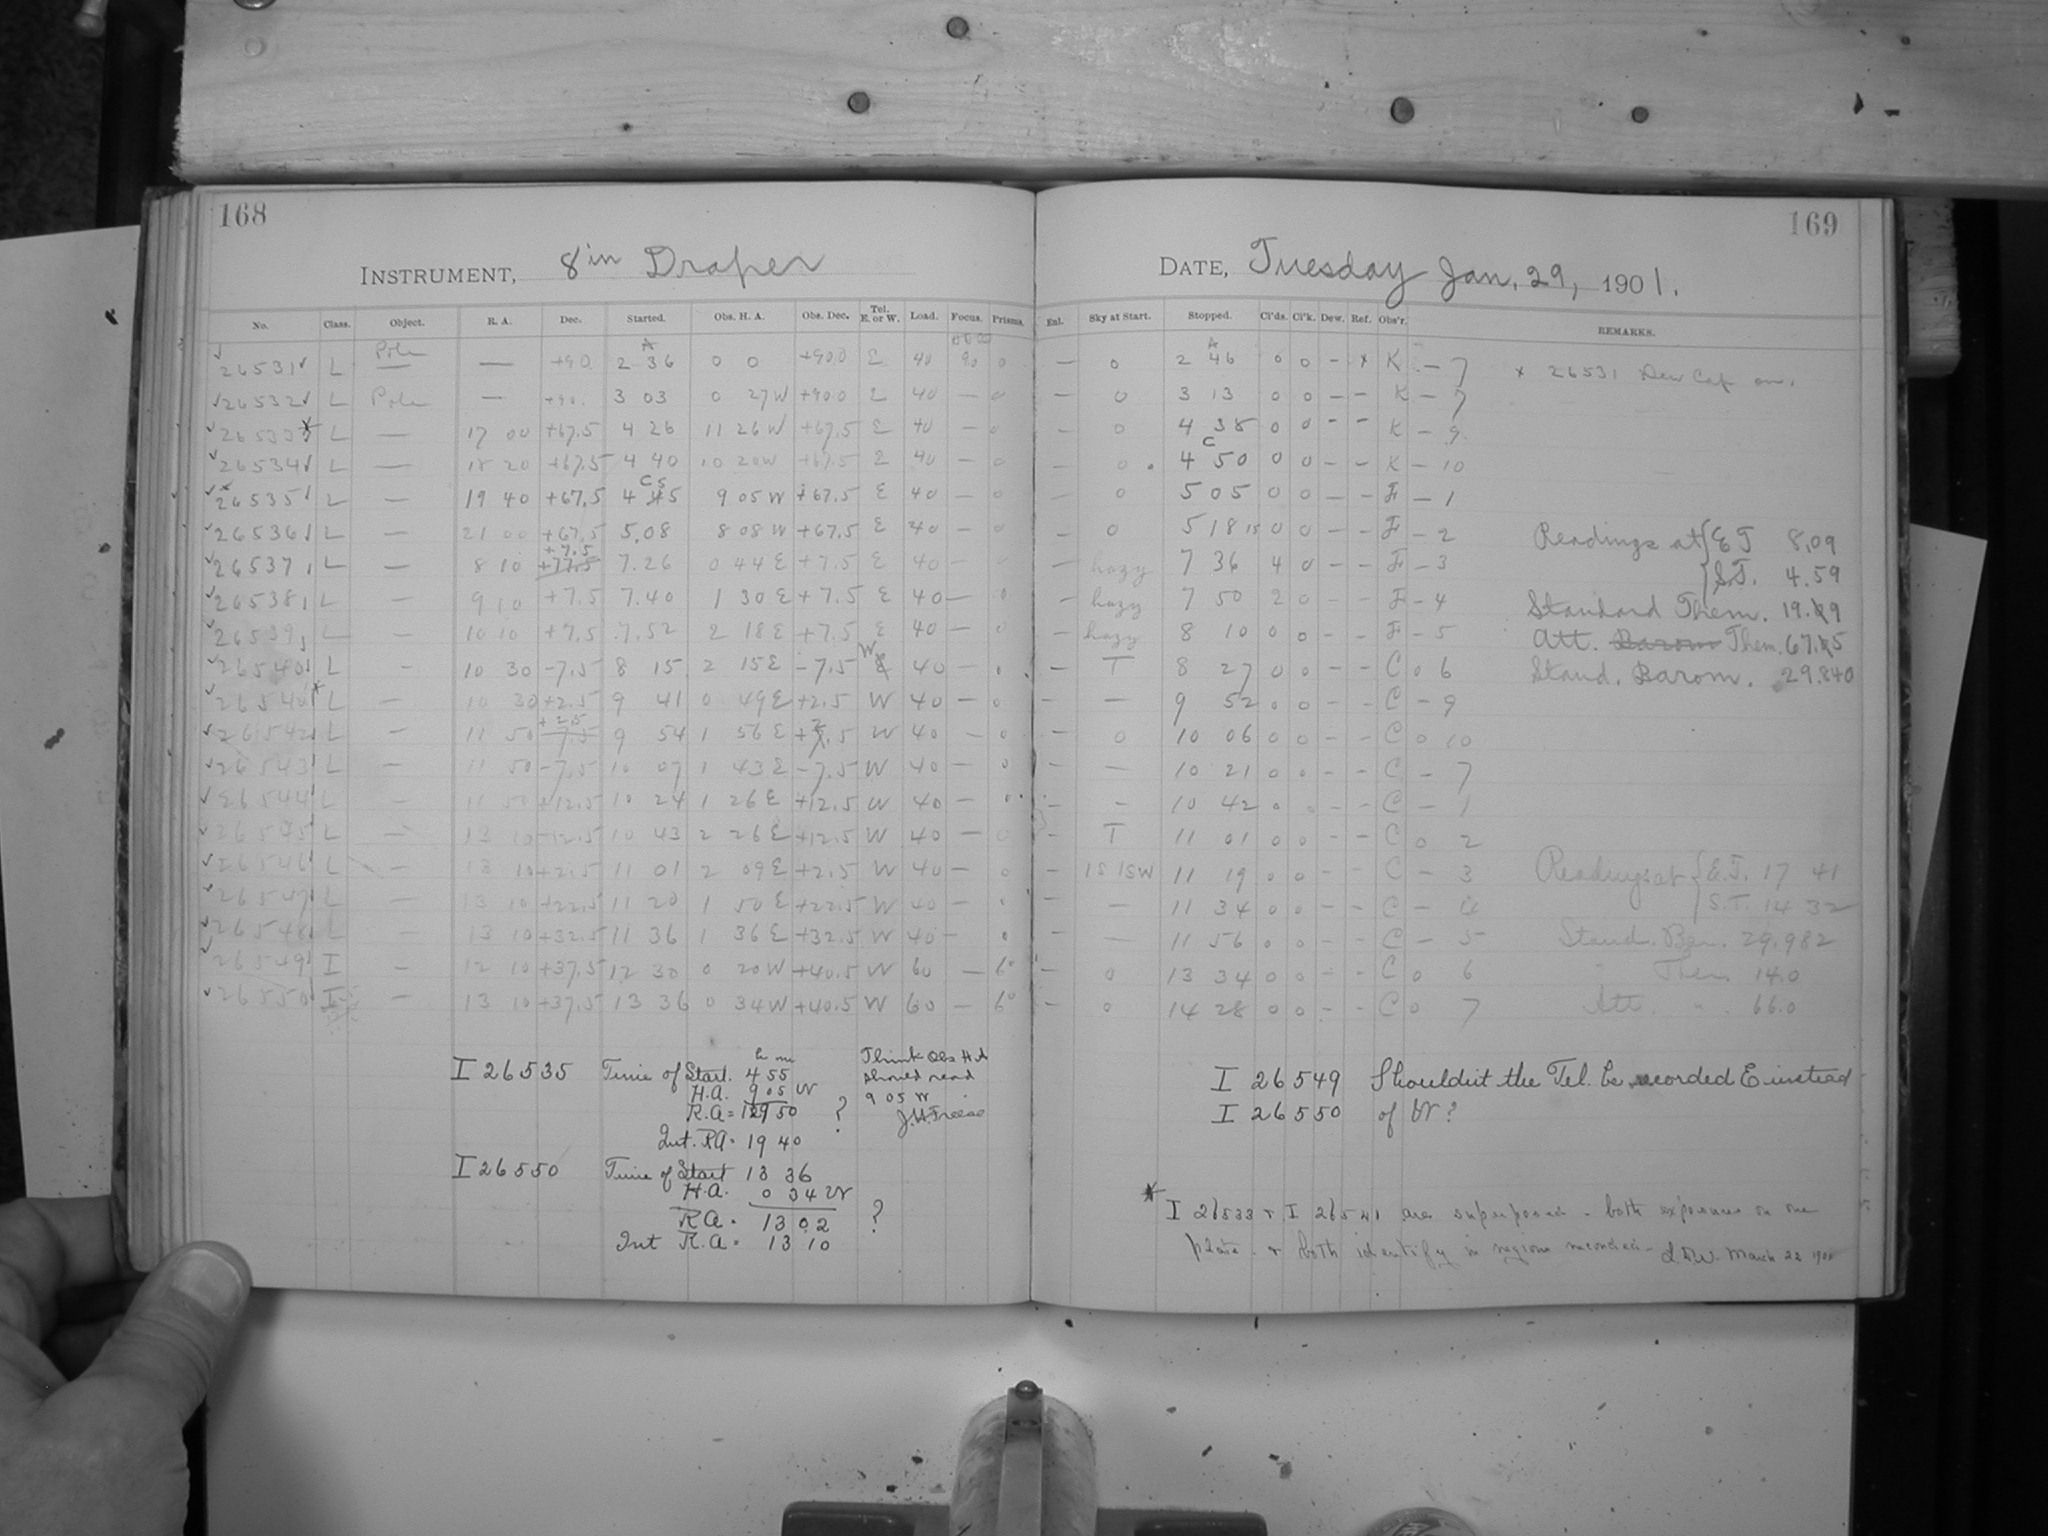 168
INSTRUMENT, 8 in Draper
No. Class. Object. R. A. Dec. Started. Obs. H. A. Obs. Dec. Tel. E. or W. Load. Focus. Prisms.
26531 L Pole — — +90. 2 36 0 0 +90.0 E 40 90 0
26532 L Pole — +90. 3 03 0 27W +90.0 E 40 — 0
26533 * L — 17 00 +67.5 4 26 11 26W +67.5 E 40 — 0
26534 L — 18 20 +67.5 4 40 10 20W +67.5 E 40 — 0
26535 L — 19 40 +67.5 4 45 9 05 W +67.5 E 40 — 0
26536 L — 21 00 +67.5 5.08 8 08 W +67.5 E 40 — 0
26537 L — 8 10 +7.5 7.26 0 44 E +7.5 E 40 — 0
26538 L — 9 10 +7.5 7.40 1 30 E +7.5 E 40 — 0
26539 L — 10 10 +7.5 7.52 2 18 E +7.5 E 40 — 0
26540 L — 10 30 -7.5 8 15 2 15 E -7.5 W 40 — 0
26541 * L — 10 30 +2.5 9 41 0 49 E +2.5 W 40 — 0
26542 L — 11 50 +2.5 9 54 1 56 E +2.5 W 40 — 0
26543 L — 11 50 -7.5 10 07 1 43 E -7.5 W 40 — 0
26544 L — 11 50 +12.5 10 24 1 26 E +12.5 W 40 — 0
26545 L — 13 10 +12.5 10 43 2 26 E +12.5 W 40 — 0
26546 L — 13 10 +2.5 11 01 2 09 E +2.5 W 40 — 0
26547 L — 13 10 +22.5 11 20 1 50 E +22.5 W 40 — 0
26548 L — 13 10 +32.5 11 36 1 36 E +32.5 W 40 — 0
26549 I — 12 10 +37.5 12 30 0 20 W +40.5 W 60 — 6°
26550 I — 13 10 +37.5 13 36 0 34 W +40.5 W 60 — 6°
I 26535 Time of Start. 4 55
h m
H.A. 9 05 W
R.A = 19 50 ?
Int. RA = 19 40
Think Obs H A
should read
9 05 W
J.H. Freese
I 26550 Time of Start 13 36
H.A. 0 34 W
R A = 13 02 ?
Int R.A = 13 10
169
DATE, Tuesday Jan. 29, 1901.
Enl. Sky at Start. Stopped. Cl'ds. Cl'k. Dew. Ref. Obs'r. REMARKS.
— 0 2 46 0 0 — x K — 7 x 26531 Dew Cap on.
— 0 3 13 0 0 — — K — 7
— 0 4 38 0 0 — — K — 9
— 0 4 50 0 0 — — K — 10
— 0 5 05 0 0 — — F — 1
— 0 5 18 15 0 0 — — F — 2 Readings at { E T 8.09
— hazy 7 36 4 0 — — F — 3 S.T. 4.59
— hazy 7 50 2 0 — — F — 4 Standard Them. 19.9
— hazy 8 10 0 0 — — F — 5 Att. Barom Them. 67.5
— T 8 27 0 0 — — C 0 6 Stand. Barom. 29.840
— — 9 52 0 0 — — C — 9
— 0 10 06 0 0 — — C 0 10
— — 10 21 0 0 — — C — 7
— — 10 42 0 0 — — C — 1
— T 11 01 0 0 — — C 0 2
— 1S 1SW 11 19 0 0 — — C — 3 Readings at { E.T. 17 41
— — 11 34 0 0 — — C — 4 S.T. 14 32
— — 11 56 0 0 — — C — 5 Stand. Bar. 29.982
— 0 13 34 0 0 — — C 0 6 " Ther. 14.0
— 0 14 28 0 0 — — C 0 7 Att. " 66.0
I 26549 Shouldnt the Tel. be recorded E instead
I 26550 of W?
* I 26533 + I 26541 are superposed - both exposures on one
plate. & both identify in regions recorded - L D W. March 22